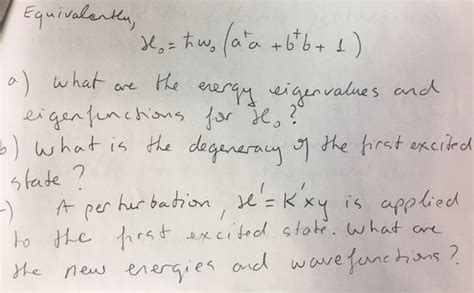 Equivalently,
ℋ₀ = ħω₀ (a⁺a + b⁺b + 1)
a) What are the energy eigenvalues and
eigenfunctions for ℋ₀?
b) What is the degeneracy of the first excited
state?
-) A perturbation, ℋ' = K'xy is applied
to the first excited state. What are
the new energies and wavefunctions?